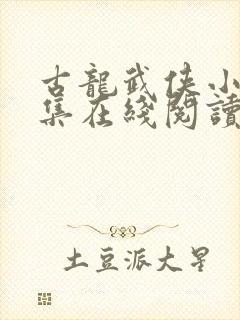 古龍武俠小
集在綫閱讀
土豆派大星